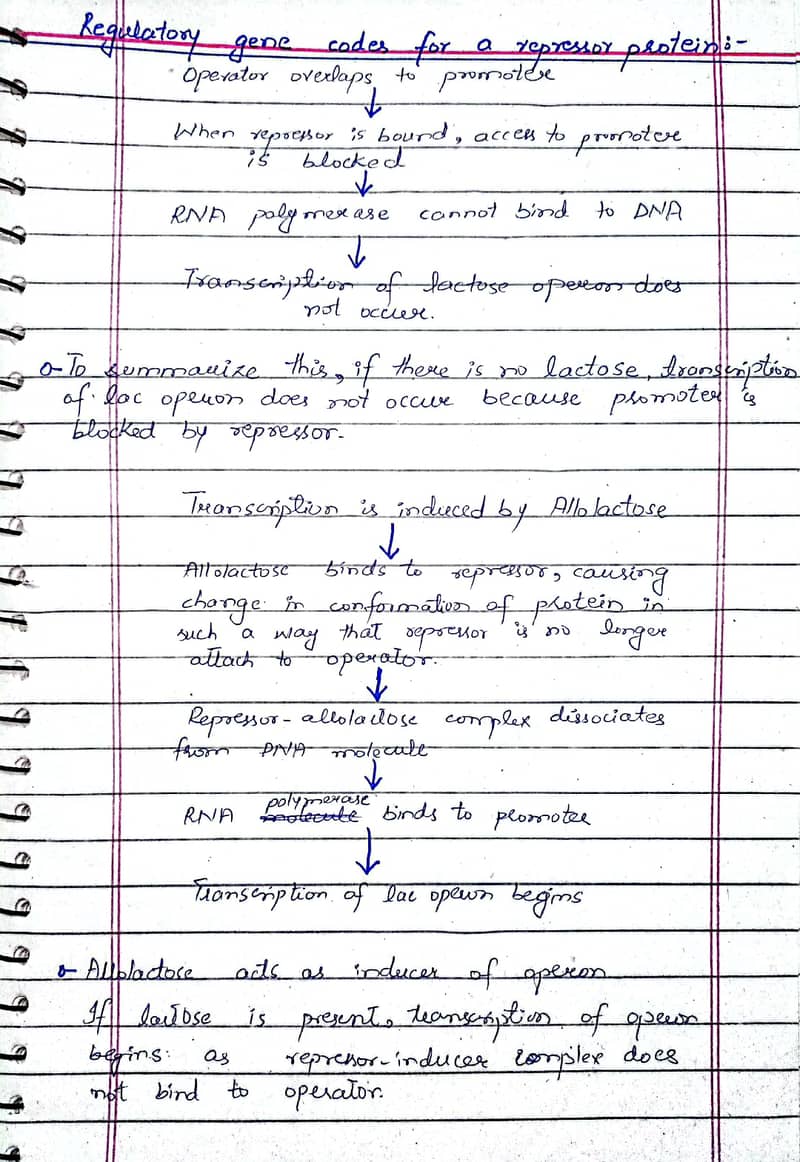 Regulatory gene codes for a repressor protein:-
Operator overlaps to promoter
When repressor is bound, access to promoter
is blocked
RNA polymerase cannot bind to DNA
Transcription of lactose operon does
not occur.
o- To summarize this, if there is no lactose, transcription
of lac operon does not occur because promoter is
blocked by repressor-
Transcription is induced by Allolactose
Allolactose binds to repressor, causing
change in conformation of protein in
such a way that repressor is no longer
attach to operator.
Repressor-allolactose complex dissociates
from DNA molecule
polymerase
RNA molecule binds to promoter
Transcription of lac operon begins
o- Allolactose acts as inducer of operon
If lactose is present, transcription of operon
begins as represor-inducer complex does
not bind to operator.